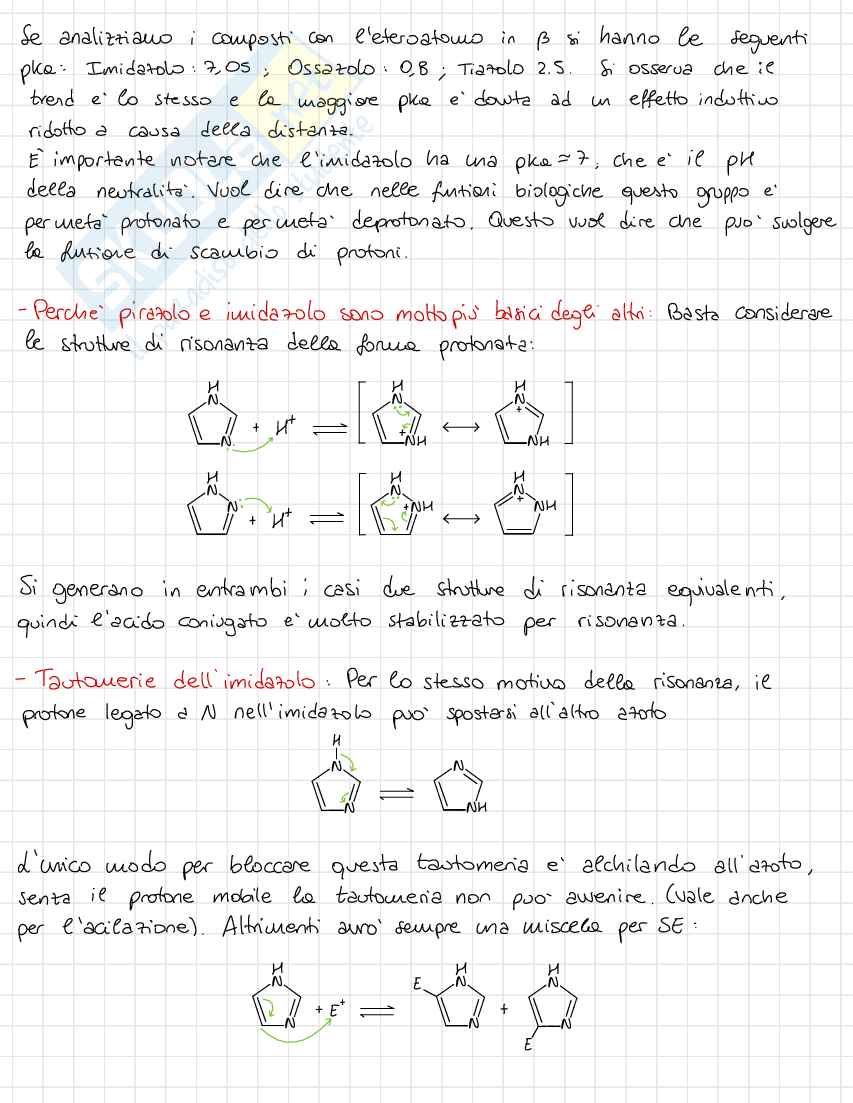 Se analizziamo i composti con l'eteroatomo in β si hanno le seguenti
pka: Imidazolo: 7,05 ; Ossazolo: 0,8 ; Tiazolo 2.5. Si osserva che il
trend e' lo stesso e la maggiore pka e' dovuta ad un effetto induttivo
ridotto a causa della distanza.
E' importante notare che l'imidazolo ha una pka ≈ 7, che e' il pH
della neutralita'. Vuol dire che nelle funzioni biologiche questo gruppo e'
per meta' protonato e per meta' deprotonato. Questo vuol dire che puo' svolgere
la funzione di scambio di protoni.
- Perche' pirazolo e imidazolo sono molto piu' basici degli altri: Basta considerare
le strutture di risonanza della forma protonata:
H H H
N N N+
N + H+ ⇌ [ +NH ↔ NH ]
H H H
N N N+
N + H+ ⇌ [ +NH ↔ NH ]
Si generano in entrambi i casi due strutture di risonanza equivalenti,
quindi l'acido coniugato e' molto stabilizzato per risonanza.
- Tautomerie dell'imidazolo: Per lo stesso motivo della risonanza, il
protone legato a N nell'imidazolo puo' spostarsi all'altro azoto
H
N N
N ⇌ NH
L'unico modo per bloccare questa tautomeria e' alchilando all'azoto,
senza il protone mobile la tautomeria non puo' avvenire. (Vale anche
per l'acilazione). Altrimenti avro' sempre una miscela per SE:
H H H
N E N N
N + E+ ⇌ N + N
E